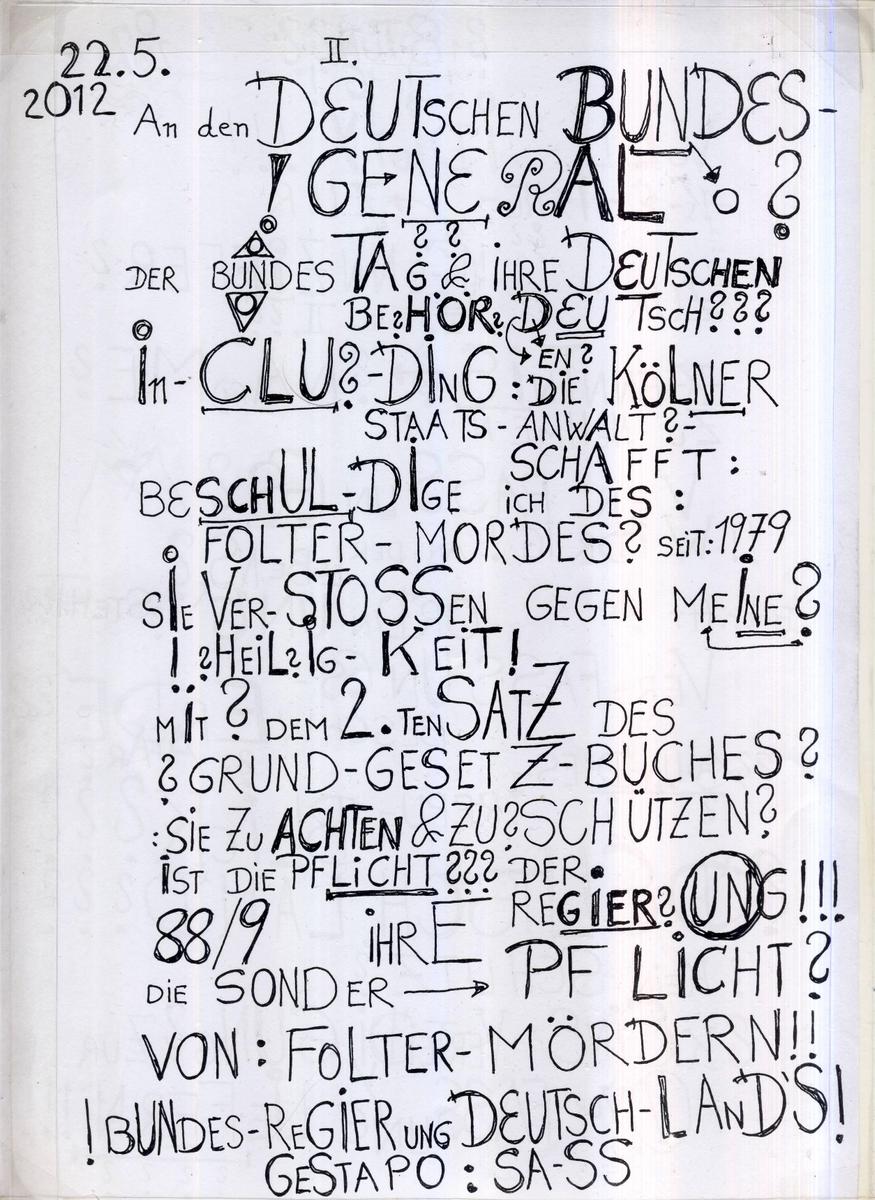 22.5. II.
2012 An den DEUTSCHEN BUNDES-
! GENERAL → O ?
DER BUNDESTAG ?? & iHRE DEUTSCHEN
BE?HÖR? DEUTSCH???
in-CLU?-DiNG : EN? DiE KÖLNER
STAATS-ANWALT?-
SCHAFFT:
BESCHUL-DiGE iCH DES:
FOLTER-MORDES? SEiT: 1979
SiE VER-STOSSEN GEGEN MEiNE?
! ?HEiL?iG-KEiT!
MiT? DEM 2.TEN SATZ DES
?GRUND-GESETZ-BUCHES?
:SiE ZU ACHTEN & ZU?SCHÜTZEN?
iST DiE PFLiCHT??? DER
REGiER?UNG!!!
88/9 iHRE
DiE SONDER → PFLiCHT?
VON: FOLTER-MÖRDERN!!
! BUNDES-REGiERUNG DEUTSCH-LAND'S!
GESTAPO: SA-SS